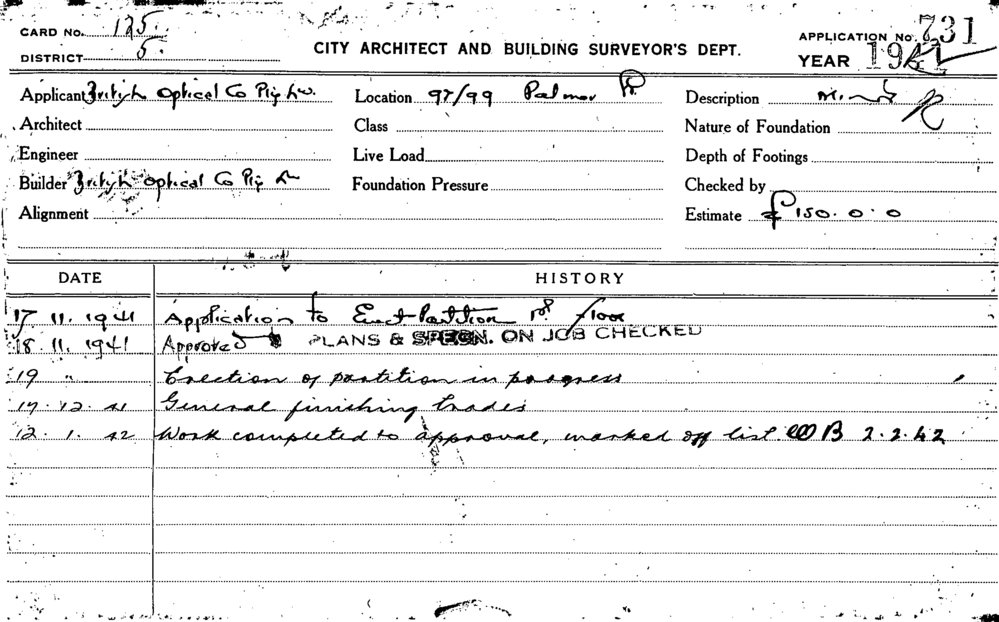 CARD No. 125.
DISTRICT 5.
CITY ARCHITECT AND BUILDING SURVEYOR'S DEPT.
APPLICATION No. 731
YEAR 1941
Applicant British Optical Co Pty Ltd. Location 97/99 Palmer St. Description
Architect Class Nature of Foundation
Engineer Live Load Depth of Footings
Builder British Optical Co Pty Foundation Pressure Checked by
Alignment Estimate £150.0.0
DATE HISTORY
17 11. 1941 Application to Erect Partition 1st floor
18.11. 1941 Approved PLANS & SPECN. ON JOB CHECKED
19 " Erection of partition in progress
17.12.41 General finishing trades
12.1.42 Work completed to approval, marked off list B 2.2.42